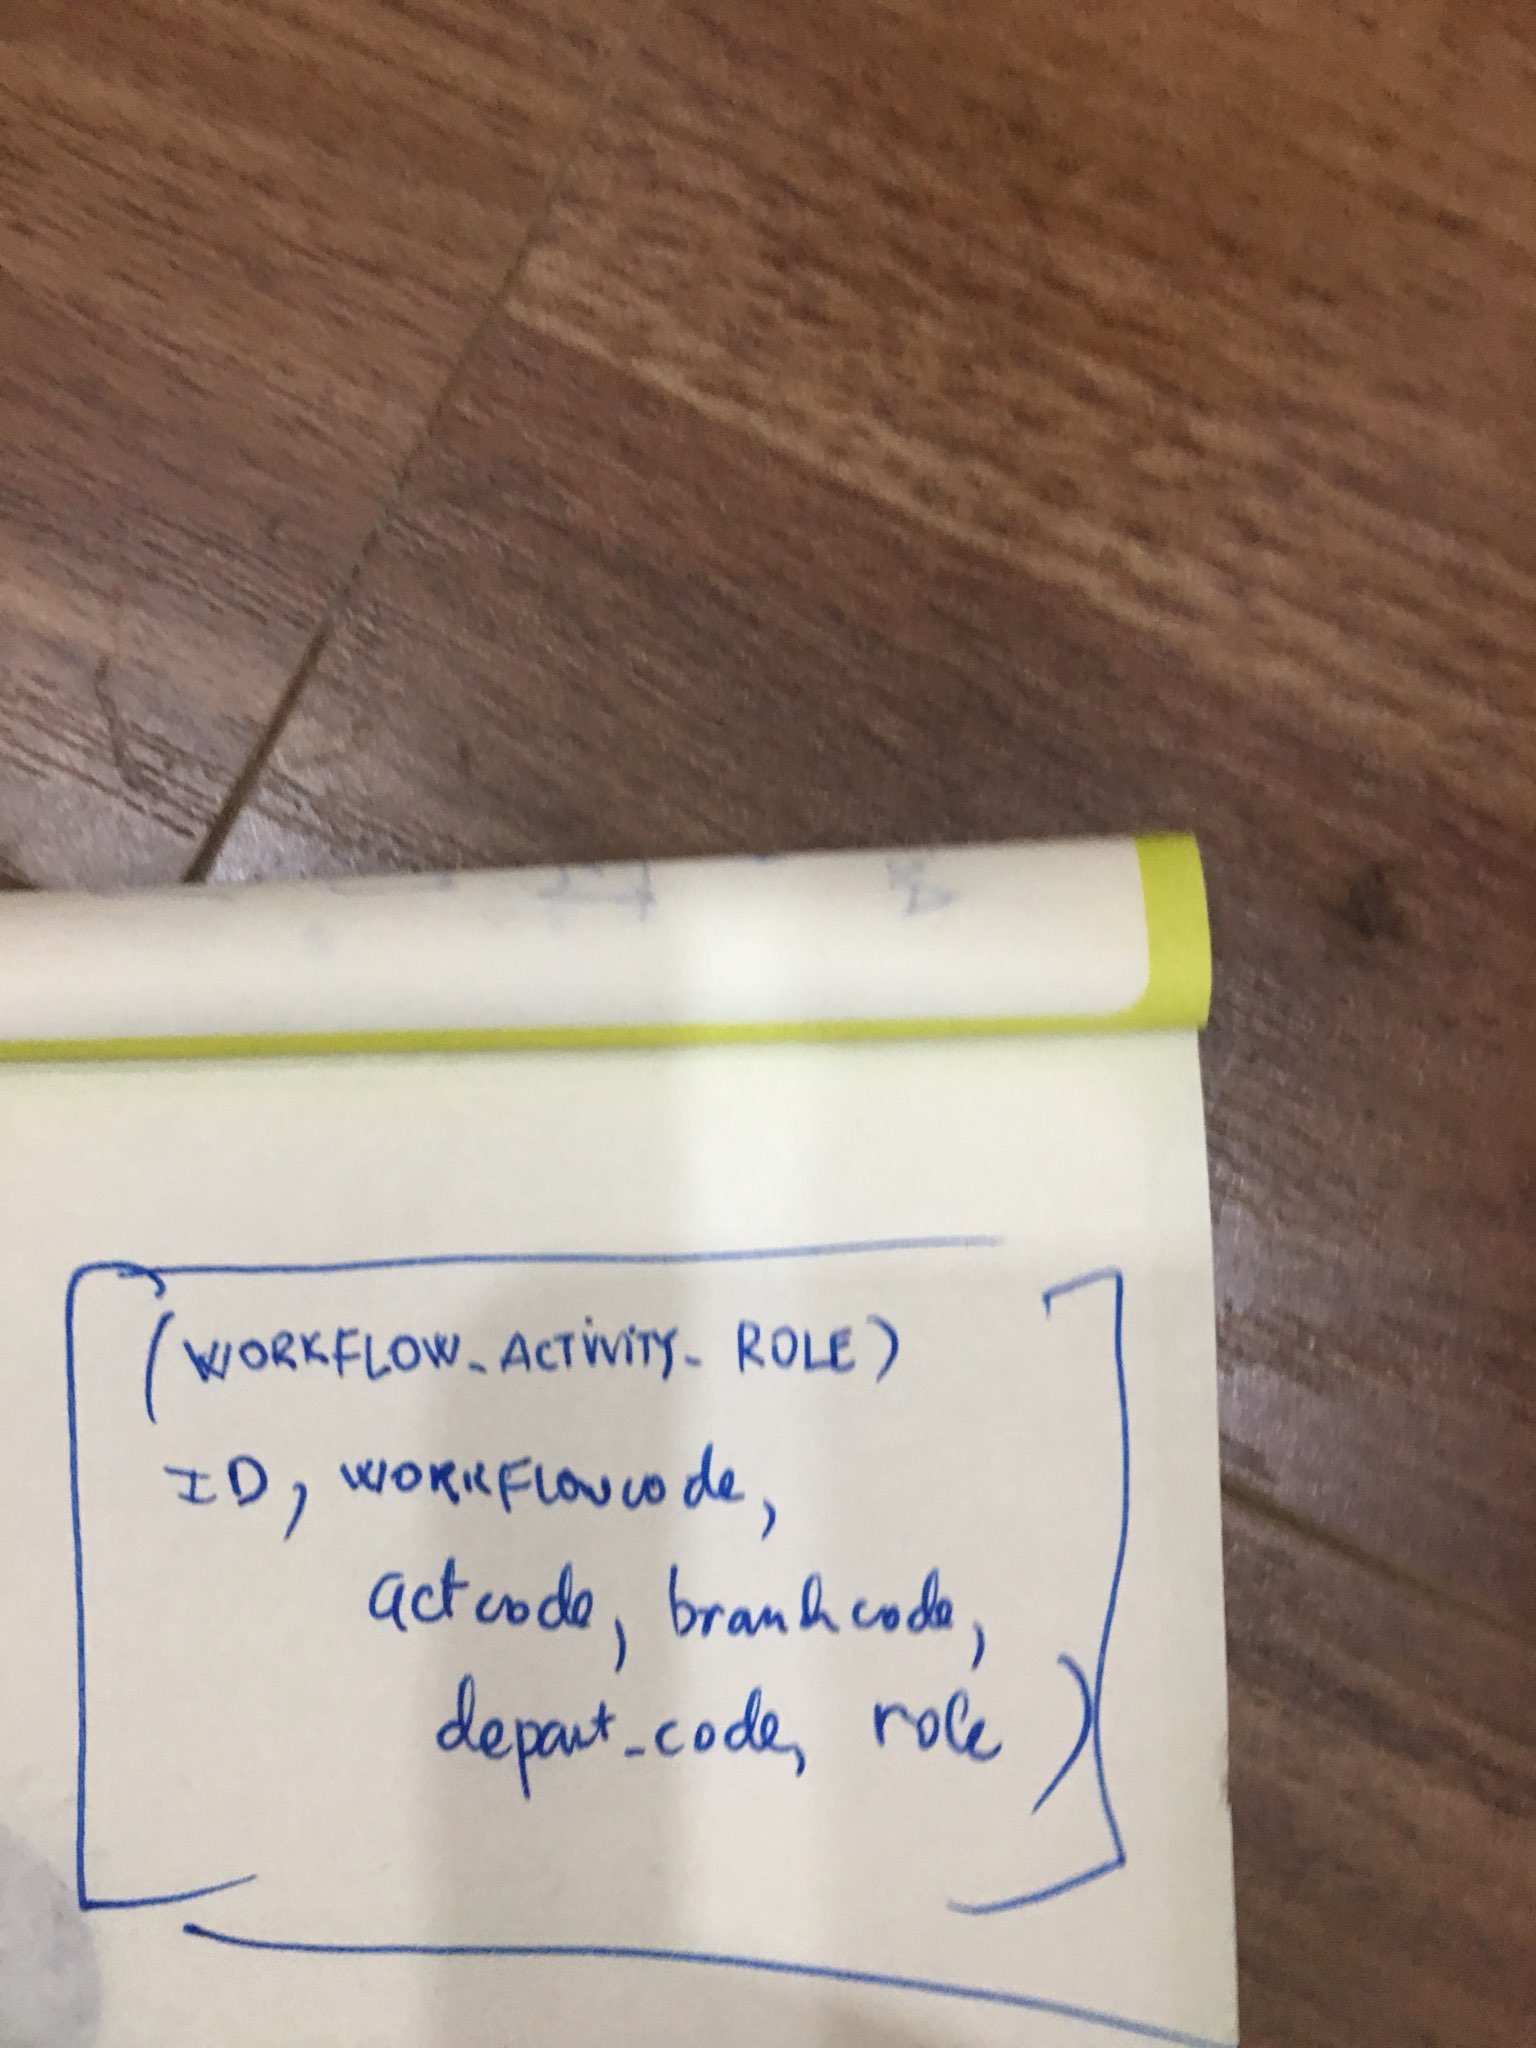 (WORKFLOW_ACTIVITY_ROLE)
ID, WORKFLOWcode,
actcode, branhcode,
depart_code, role )